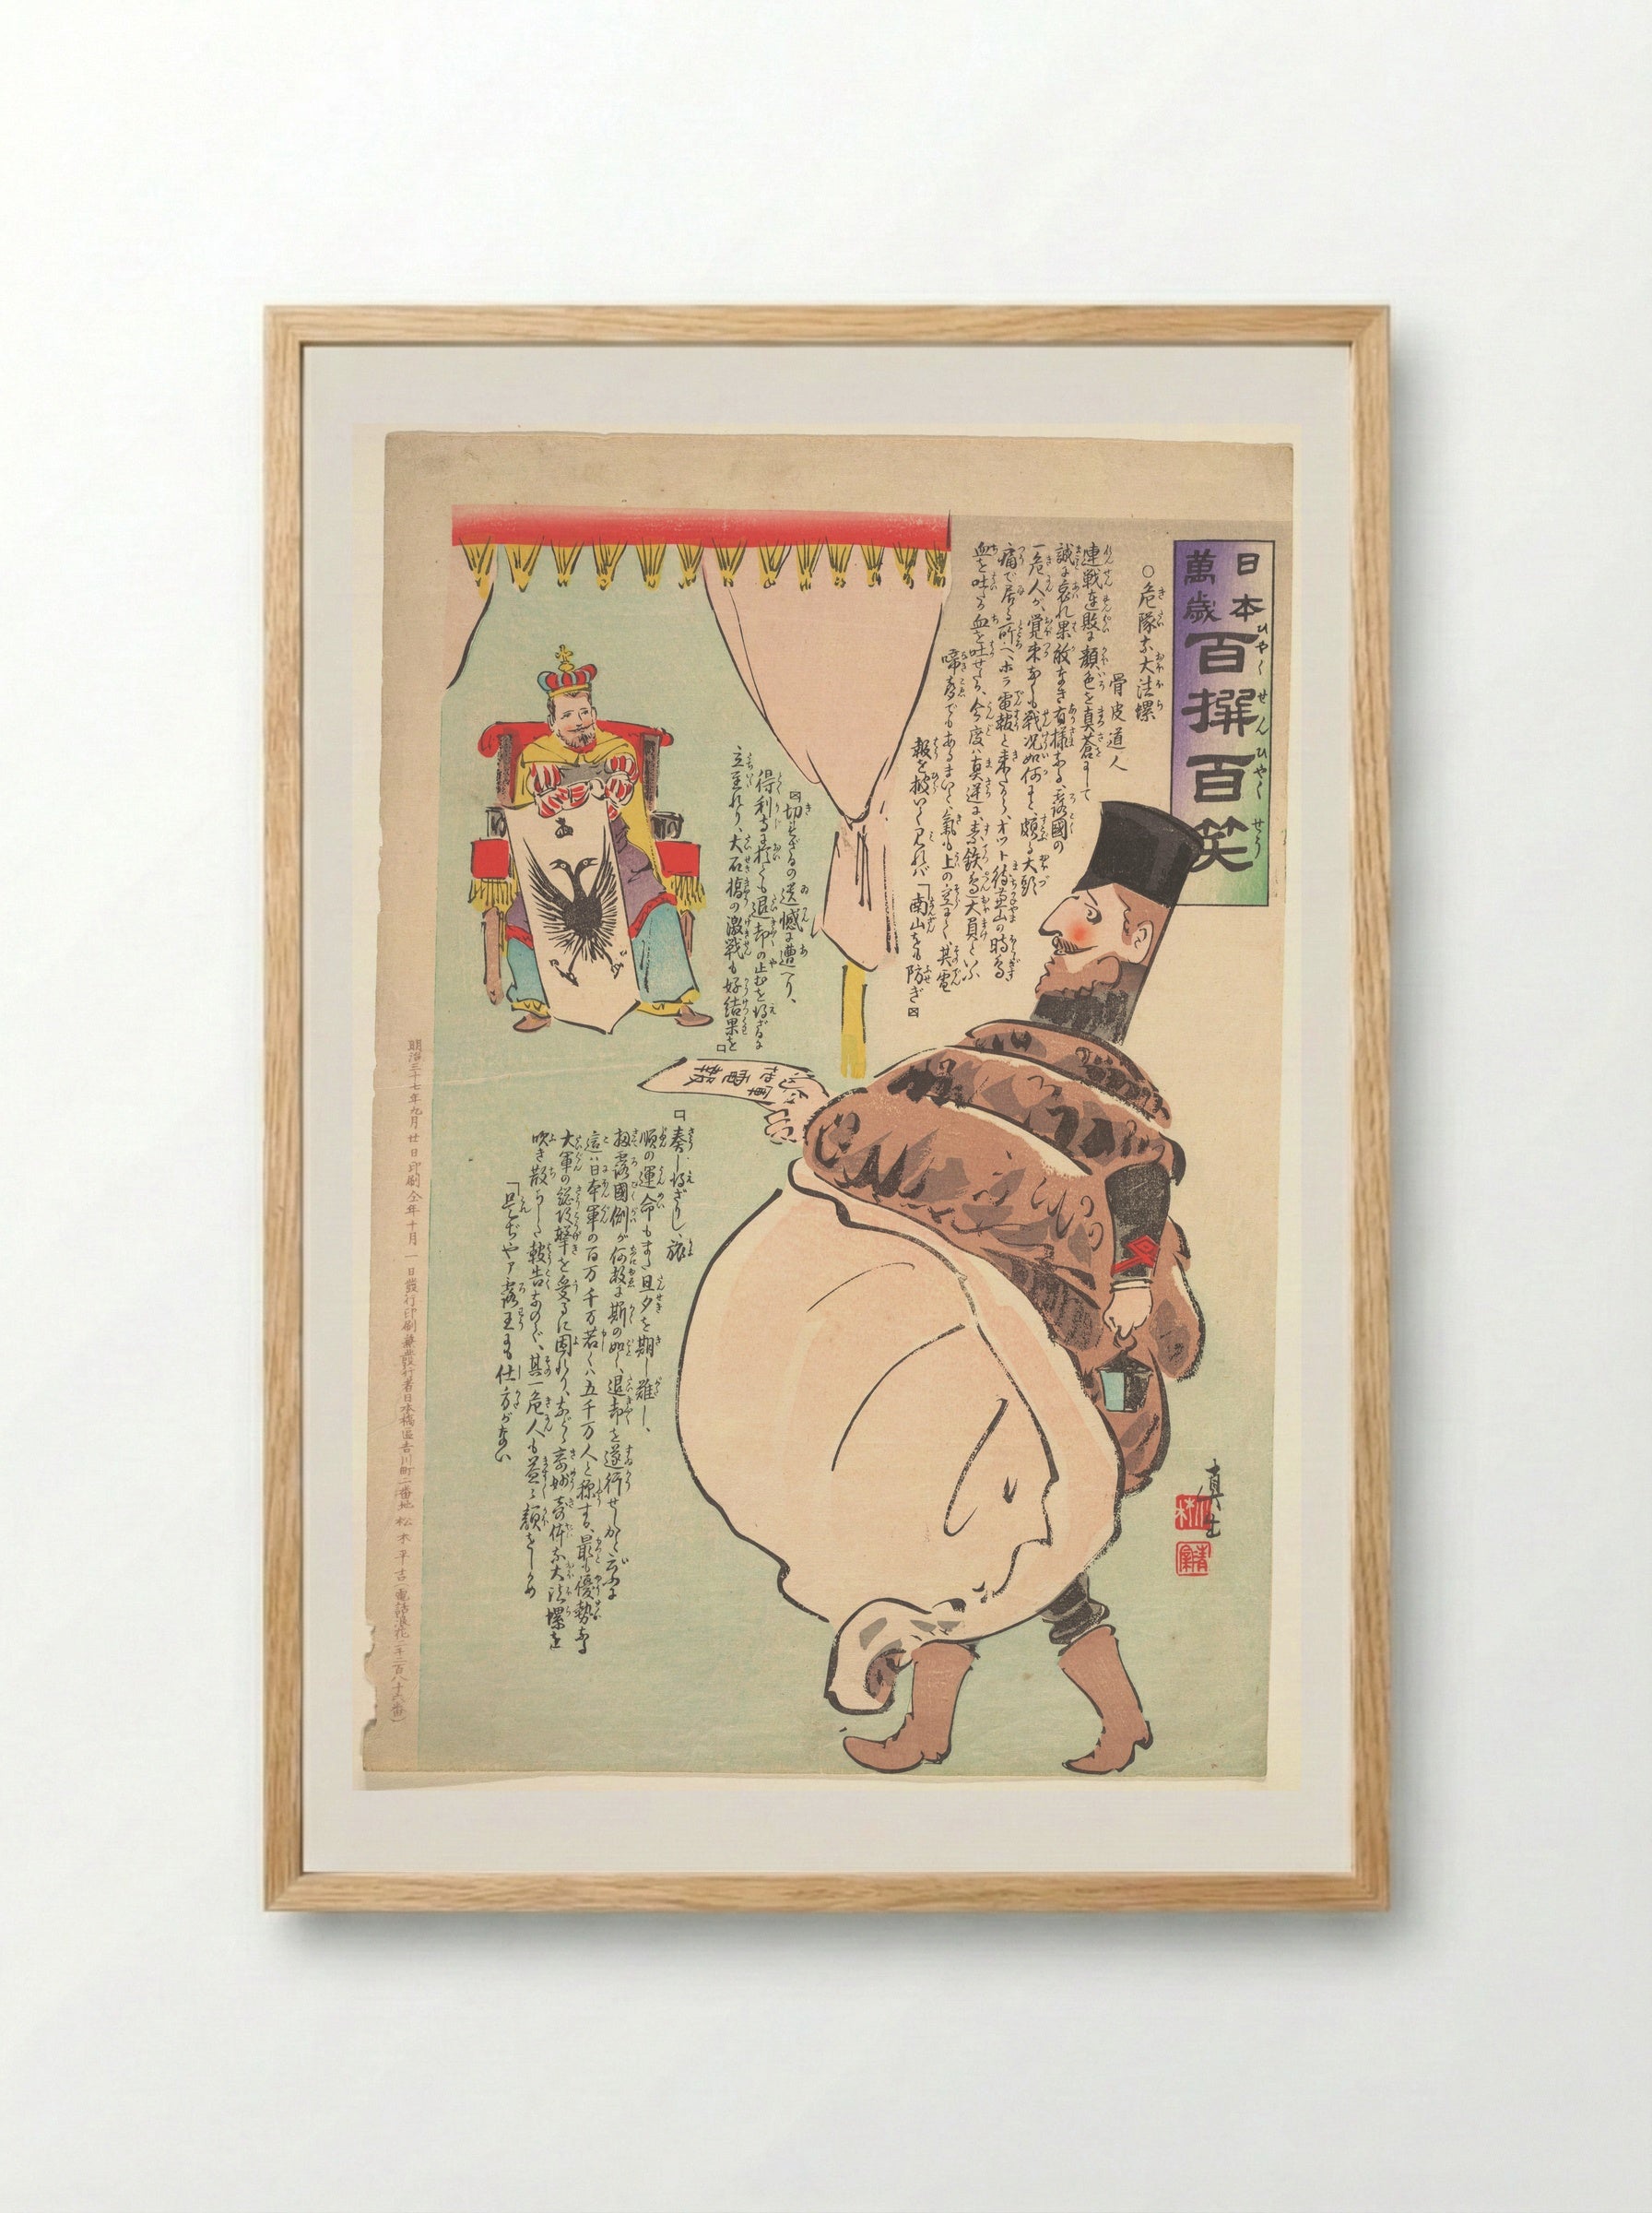 日本
萬歳
百撰百笑
ひやくせんひやくせう
○危隊な大法螺
骨皮道人
連戦連敗に顔色を真蒼にして
誠に哀れ果敢なき有様なる、露國の
一危人が、覚束なくも戦况如何にと、頗る大頭
痛で居る所へホラ電報と来たから、オット待
血を吐たか血を吐せるか、今度ハ真逆に
啼声でもあるまいと、氣も上の空にて、其電
報を披いて見れバ「南山をも防ぎ
切れざるの遺憾に遭へり、
得利寺に於ても退却の止むを得ざるに
立至れり、大石橋の激戦も好結果を
奏し得ざりし、旅
順の運命もまた旦夕を期し難し、
扨露國側が何故に斯の如く、退却を遂行せしかと云ふに
這ハ日本軍の百万千万若くハ五千万人と称する、最も優勢なる
大軍の総攻撃を受るに因れり、などゝ奇妙奇体な大法螺を
吹き散らした報告なので、其一危人も益々顔をしかめ
「是ぢやア露王も仕方がない
電報
明治三十七年九月廿日印刷仝年十月一日發行印刷兼發行者日本橋區吉川町二番地松木平吉(電話浪花二千二百八十六番)
真生